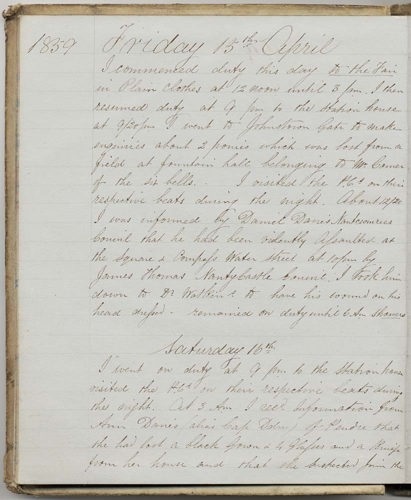 1859 Friday 15th April
I commenced duty this day to the Fair
in Plain Clothes at 12 noon until 3 pm. I then
resumed duty at 9 pm to the Station House
at 9/20pm I went to Johnstown Gate to make
enquiries about 2 ponies which was lost from a
field at fountain hall belonging to Mr
of the six bells. I visited the PCs on their
respective beats during the night. About
I was informed by Daniel Davies
Council that he had been violently Assaulted at
the Square & Compass Water Street at 10pm by
James Thomas Nantycastle Council. I took him
down to Dr Watkins to have his wound on his
head dressed. remained on duty until 6 Am Showers
Saturday 16th
I went on duty at 9 pm to the Station house
visited the PCs on their respective beats during
the night. At 3 Am I recd Information from
Ann Davies alias of
that she had lost a black Gown & 4 Glasses and a
from her house and that she suspected from the